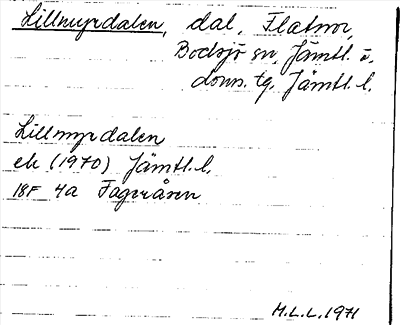 Lillmyrdalen, dal, Flatnor,
Bodsjö sn, Jämtl. ö.
doms. tg, Jämtl. l.
Lillmyrdalen
ek (1970) Jämtl. l.
18F 4a Fageråsen
M.L.L. 1971